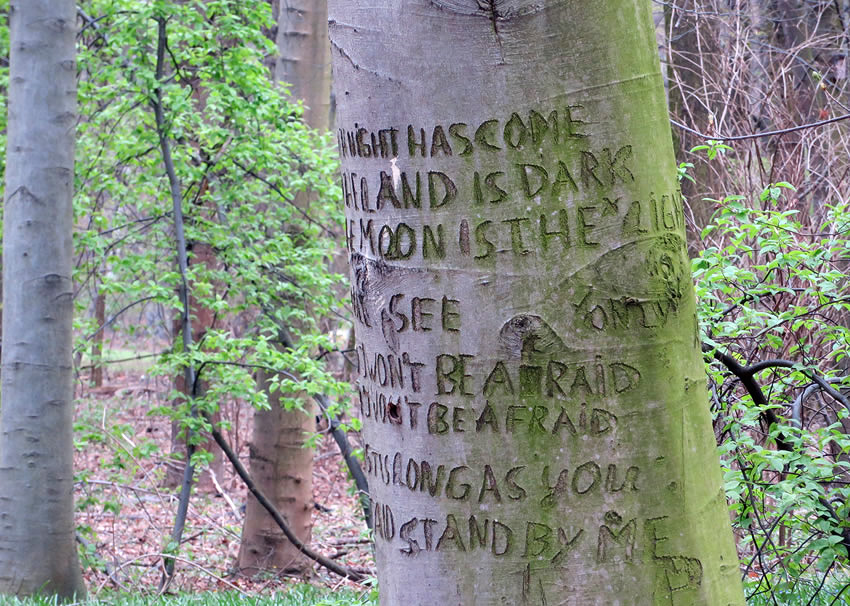 NIGHT HAS COME
LAND IS DARK
MOON IS THE LIGH
SEE
ONLY
WON'T BE AFRAID
WON'T BE AFRAID
AS LONG AS YOU
STAND BY ME